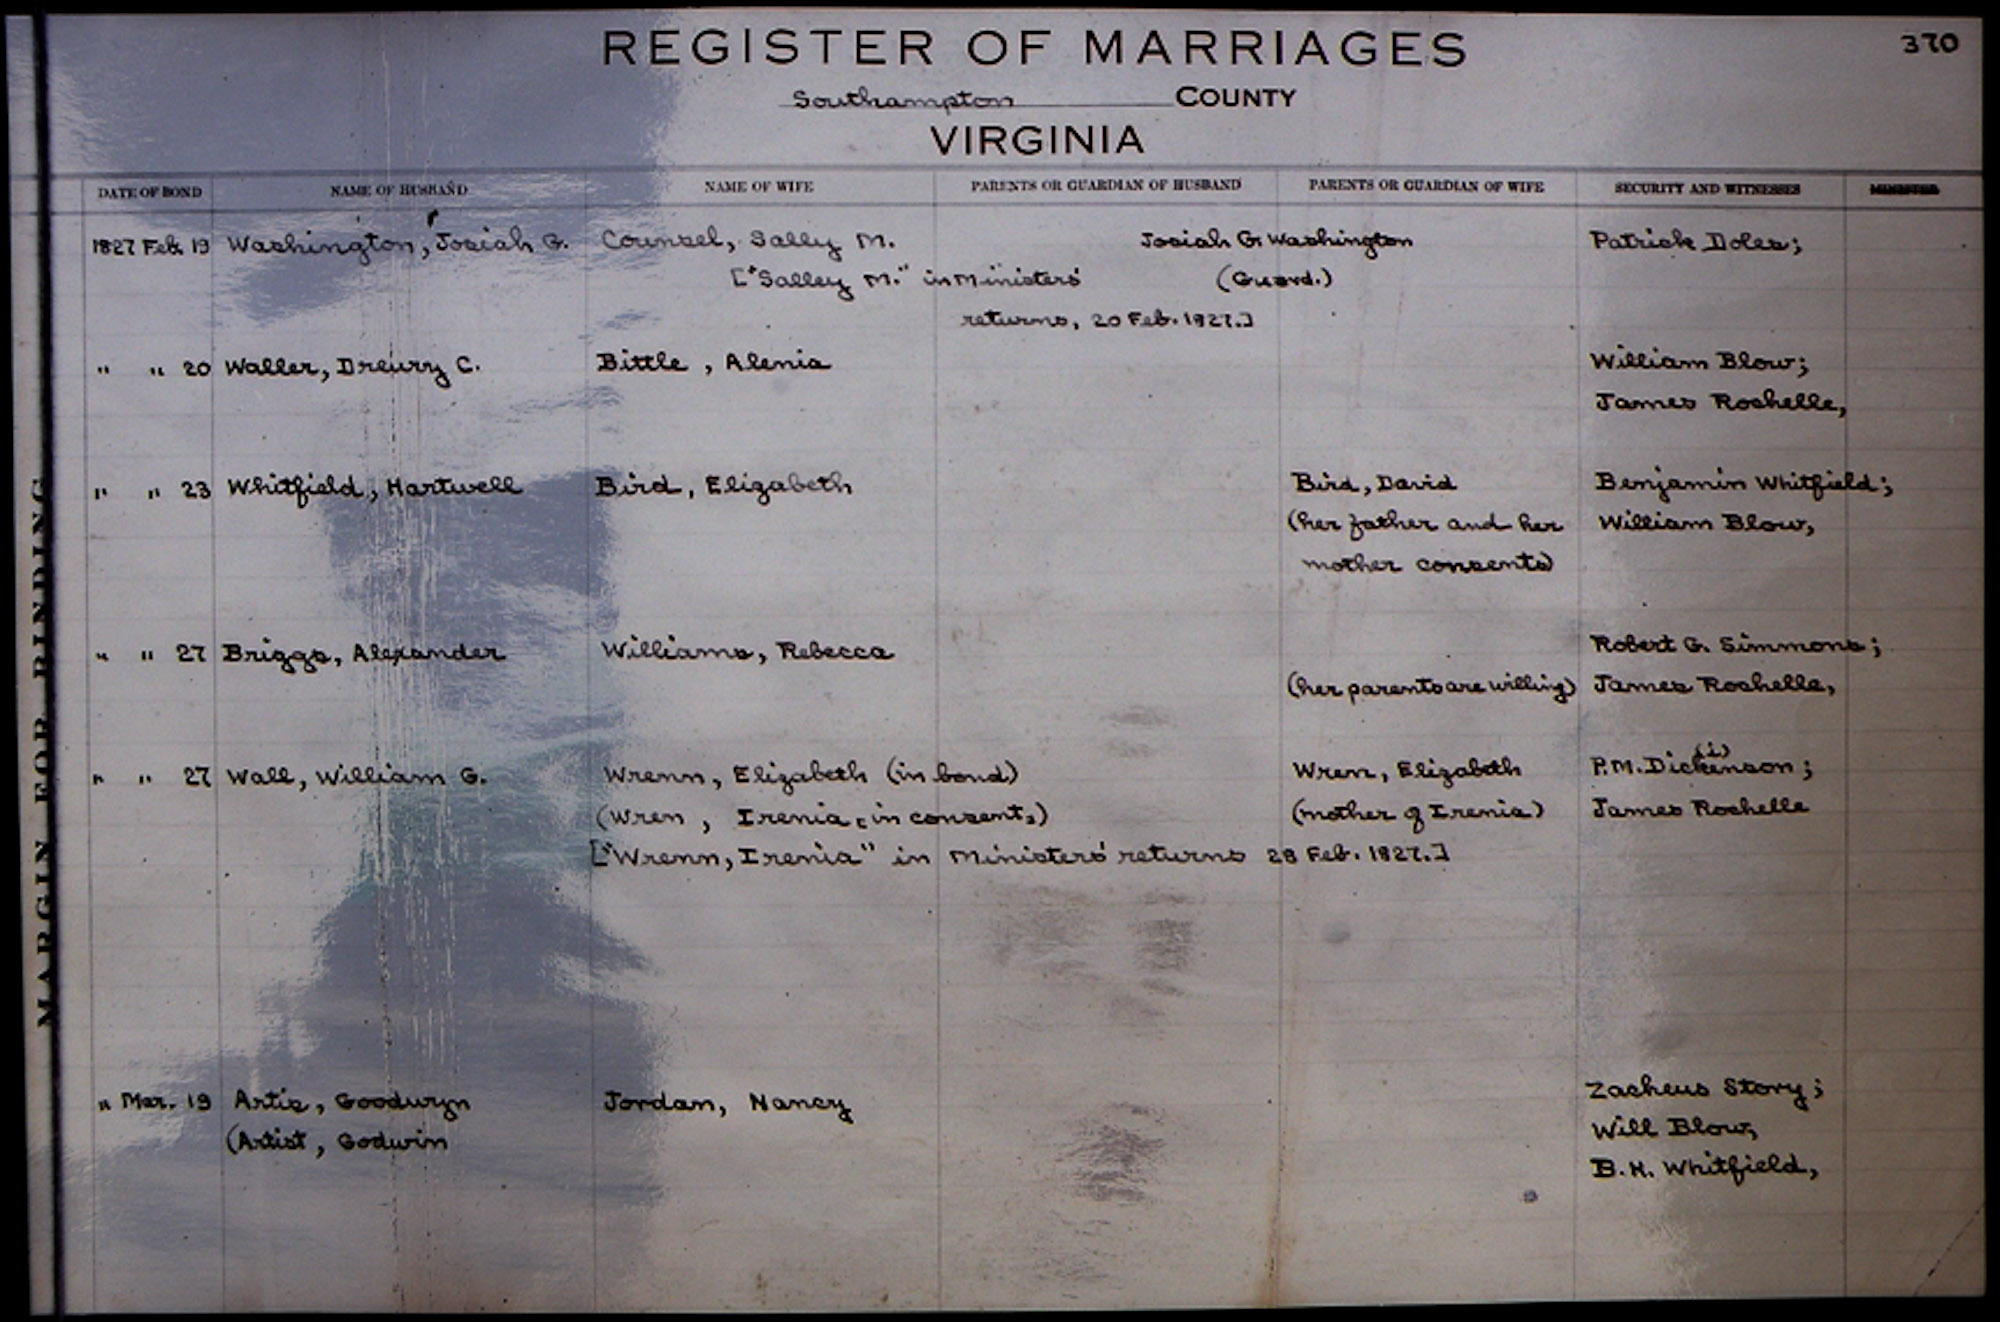 REGISTER OF MARRIAGES
370
Southampton COUNTY
VIRGINIA
DATE OF BOND NAME OF HUSBAND NAME OF WIFE PARENTS OR GUARDIAN OF HUSBAND PARENTS OR GUARDIAN OF WIFE SECURITY AND WITNESSES MINISTER
1827 Feb. 19 Washington, Josiah G. Counsel, Sally M. Josiah G. Washington Patrick Doles;
["Salley M." in Ministers' (Guard.)
returns, 20 Feb. 1827.]
" " 20 Waller, Drewry C. Bittle, Alenia William Blow;
James Rochelle,
" " 23 Whitfield, Hartwell Bird, Elizabeth Bird, David Benjamin Whitfield;
(her father and her William Blow,
mother consents)
" " 27 Briggs, Alexander Williams, Rebecca Robert G. Simmons;
(her parents are willing) James Rochelle,
" " 27 Wall, William G. Wrenn, Elizabeth (in bond) Wren, Elizabeth P.M. Dickenson (i);
(Wren, Irenia, in consent,) (mother of Irenia) James Rochelle
["Wrenn, Irenia" in Ministers' returns 28 Feb. 1827.]
" Mar. 19 Artis, Goodwyn Jordan, Nancy Zacheus Story;
(Artist, Godwin Will Blow,
B.H. Whitfield,
MARGIN FOR BINDING